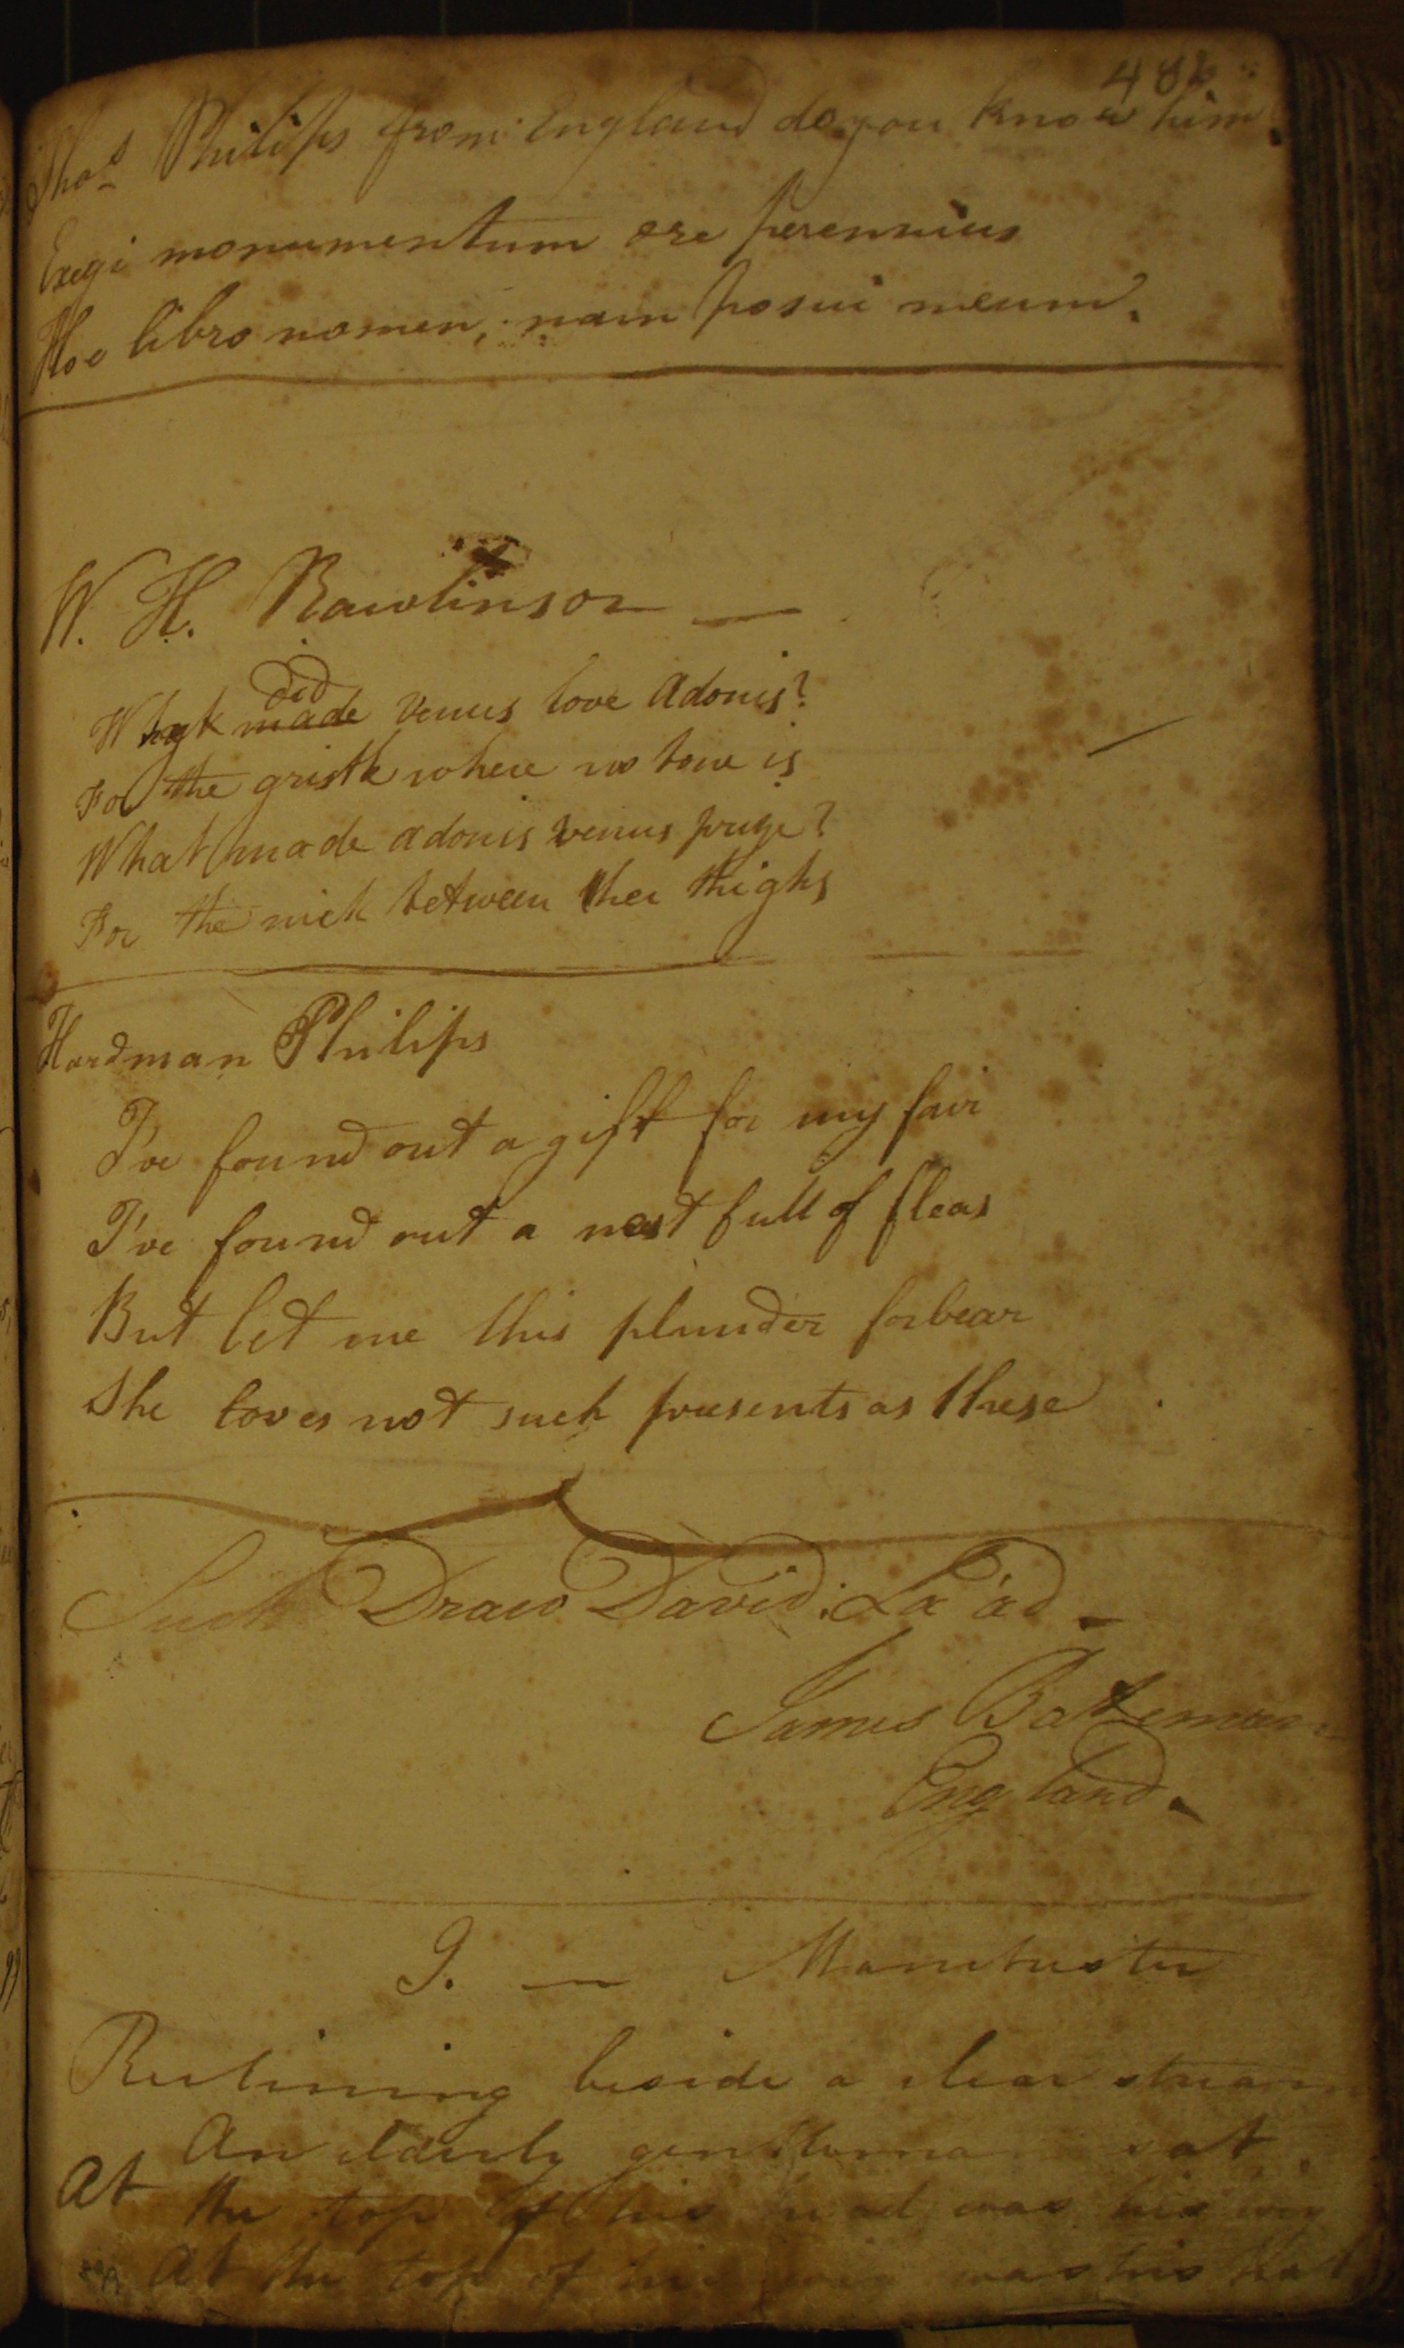 486
Thos Philips from England do you know him.
Exegi monumentum ære perennius
Hoc libro nomen, nam posui meum.
W. H. Rawlinson —
did
What made Venus love Adonis?
For the gristle where no bone is
What made adonis venus prize?
For the nick between her thighs
Hardman Philips
I've found out a gift for my fair
I've found out a nest full of fleas
But let me this plunder forbear
She loves not such presents as these
Such Draw David. La'ad –
James Bateman
England.
J. — Manchester
Reclining beside a clear stream
An elderly gentleman sat
At the top of his head was his wig
At the top of his wig was his hat